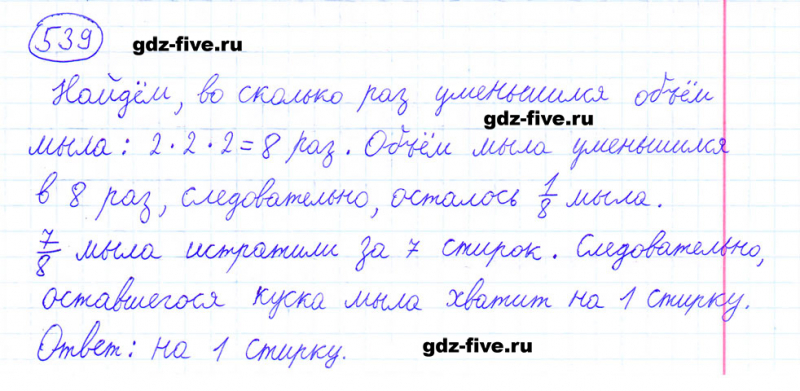 539 gdz-five.ru
Найдём, во сколько раз уменьшился объём
gdz-five.ru
мыла: 2·2·2=8 раз. Объём мыла уменьшился
в 8 раз, следовательно, осталось 1/8 мыла.
7/8 мыла истратили за 7 стирок. Следовательно,
оставшегося куска мыла хватит на 1 стирку.
Ответ: на 1 стирку. gdz-five.ru